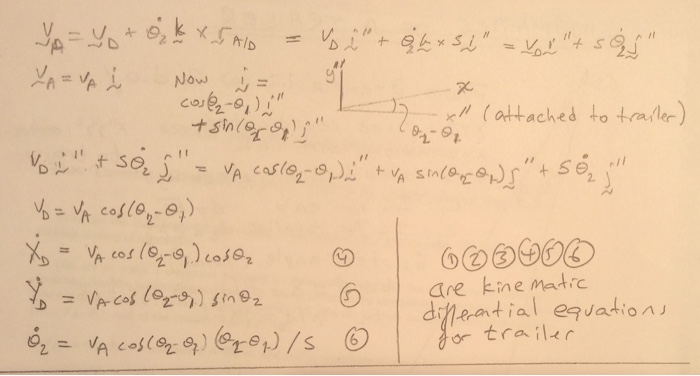 v_A = v_D + θ̇₂ k × r_A/D = v_D i'' + θ̇₂ k × s i'' = v_D i'' + s θ̇₂ j''
v_A = v_A i Now i =
cos(θ₂-θ₁) i''
+ sin(θ₂-θ₁) j''
y''
x
x'' (attached to trailer)
θ₂-θ₁
v_D i'' + s θ̇₂ j'' = v_A cos(θ₂-θ₁) i'' + v_A sin(θ₂-θ₁) j'' + s θ̇₂ j''
v_D = v_A cos(θ₂-θ₁)
Ẋ_D = v_A cos(θ₂-θ₁) cos θ₂ ④
Ẏ_D = v_A cos(θ₂-θ₁) sin θ₂ ⑤
θ̇₂ = v_A cos(θ₂-θ₁) (θ₂-θ₁) / s ⑥
①②③④⑤⑥
are kinematic
differential equations
for trailer